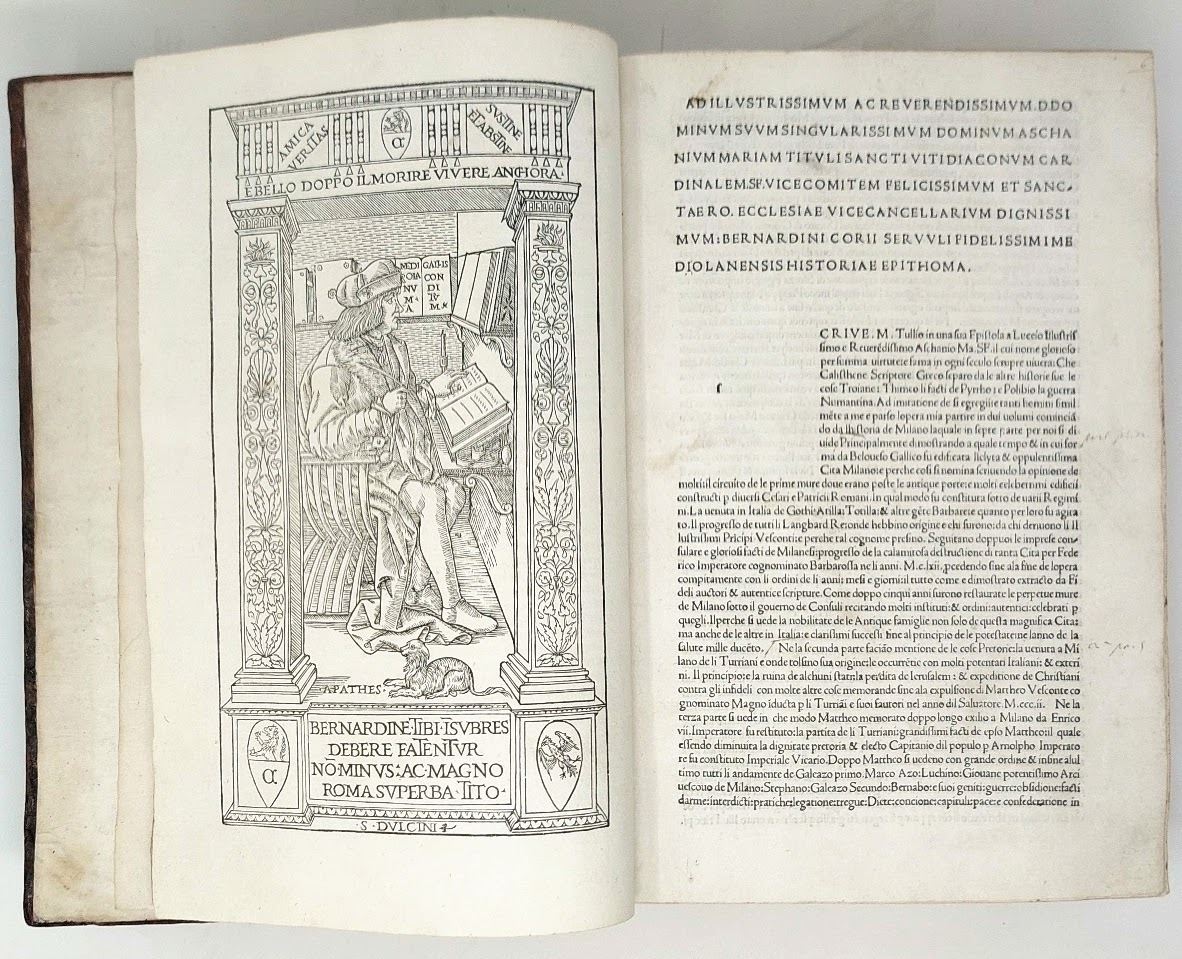 AMICA
VERITAS
SVSTINE
ET ABSTINE
E BELLO DOPPO IL MORIRE VIVERE ANCHORA.
MEDI
OLA
NV
M·
A
GALLIS
CON
DI
TV
M
APATHES·
BERNARDINE·TIBI·ISVBRES
DEBERE FATENTVR
NÕ·MINVS:AC·MAGNO
ROMA SVPERBA·TITO·
·S·DVLCINI
AD ILLVSTRISSIMVM AC REVERENDISSIMVM.D.DO
MINVM SVVM SINGVLARISSIMVM DOMINVM ASCHA
NIVM MARIAM TITVLI SANCTI VITI DIACONVM CAR
DINALEM.SF.VICECOMITEM FELICISSIMVM ET SANC-
TAE RO. ECCLESIAE VICECANCELLARIVM DIGNISSI
MVM:BERNARDINI CORII SERVVLI FIDELISSIMI ME
DIOLANENSIS HISTORIAE EPITHOMA.
ſ
CRIVE.M. Tullio in una sua Epistola a Lucceio Illustris
simo e Reuerẽdissimo Aschanio Ma.SF.il cui nome glorioso
per summa uirtute:e fama in ogni seculo sempre uiuera:Che
Calisthene Scriptore Greco separo da le altre historie sue le
cose Troiane: Thimeo li facti de Pyrrho:e Polibio la guerra
Numantina. Ad imitatione de si egregii:e tanti homini simil
mẽte a me e parso lopera mia partire in dui uolumi comincia
do da lhistoria de Milano laquale in sepre parte per noi si di
uide Principalmente dimostrando a quale tempo & in cui for
ma da Beloueso Gallico fu edificata Ilclyta & oppulentissima
Cita Milano:e perche cosi si nomina scriuendo la opinione de
molti:il circuito de le prime mure doue erano poste le antique porte:e molti celeberrimi edificii
constructi p diuersi Cesari e Patricii Romani. In qual modo fu constituta sotto de uarii Regimi
ni. La uenuta in Italia de Gothi:Attila: Totilla: & altre gẽte Barbare:e quanto per loro fu agita
to. Il progresso de tutti li Langbard Re:onde hebbino origine e chi furono: da chi denuono li Il
lustrissimi Prĩcipi Vesconti:e perche tal cognome presino. Seguitano doppuoi le imprese con-
sulare e gloriosi facti de Milanesi:progresso de la calamitosa destructione di tanta Cita per Fede
rico Imperatore cognominato Barbarossa ne li anni. M.c.lxii. pcedendo sine ala fine de lopera
compitamente con li ordini de li anni: mesi e giorni:il tutto come e dimostrato extracto da Fi
deli auctori & autentice scripture. Come doppo cinqui anni furono restaurate le perpetue mure
de Milano sotto il gouerno de Consuli recitando molti instituti: & ordini: autentici: celebrati p
quegli. Il perche si uede la nobilitate de le Antique famiglie non solo de questa magnifica Cita:
ma anche de le altre in Italia: e clarissimi successi fine al principio de le potestate:ne lanno de la
salute mille ducẽto. Ne la secunda parte facião mentione de le cose Pretorie:la uenuta a Mi
lano de li Turriani e onde tolsino sua origine:le occurrẽtie con molti potentati Italiani: & exteri
ni. Il principio:e la ruina de alchuni stati:la perdita de Ierusalem: & expeditione de Christiani
contra gli infideli con molte altre cose memorande fine ala expulsione di Mattheo Vesconte co
gnominato Magno iducta p li Turriãi e suoi fautori nel anno dil Saluatore. M.ccc.ii. Ne la
terza parte si uede in che modo Mattheo memorato doppo longo exilio a Milano da Enrico
vii. Imperatore fu restituto:la partita de li Turriani:grandissimi facti de epso Mattheo:il quale
essendo diminuita la dignitate pretoria & electo Capitanio dil populo p Arnolpho Imperato
re fu constituto Imperiale Vicario. Doppo Mattheo si uedeno con grande ordine & infine alul
timo tutti li andamente de Galeazo primo. Marco Azo: Luchino: Giouane potentissimo Arci
uescouo de Milano: Stephano: Galeazo Secundo: Bernabo:e suoi geniti:guerre:obsidione:facti
darme:interdicti:pratiche:legatione:tregue: Diete:concione:capituli:pace:e confederatione in